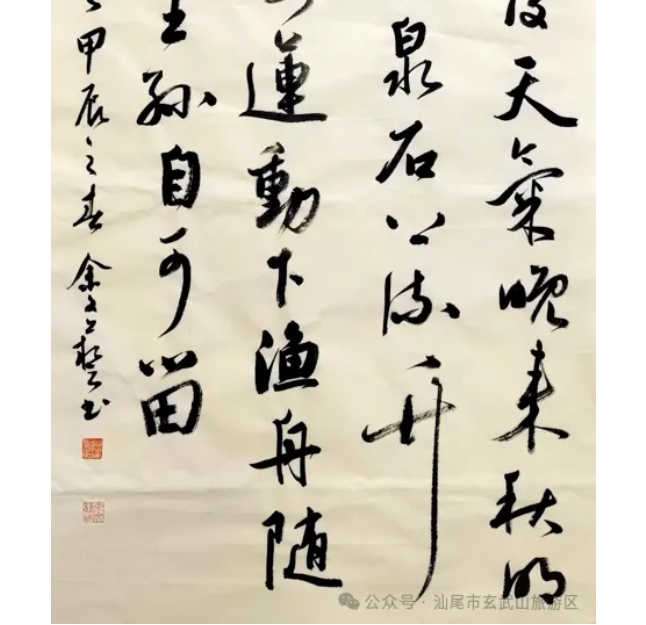 後天氣晚来秋明
泉石上流竹
蓮動下渔舟随
王孫自可留
甲辰之春 余文书
公众号 · 汕尾市玄武山旅游区